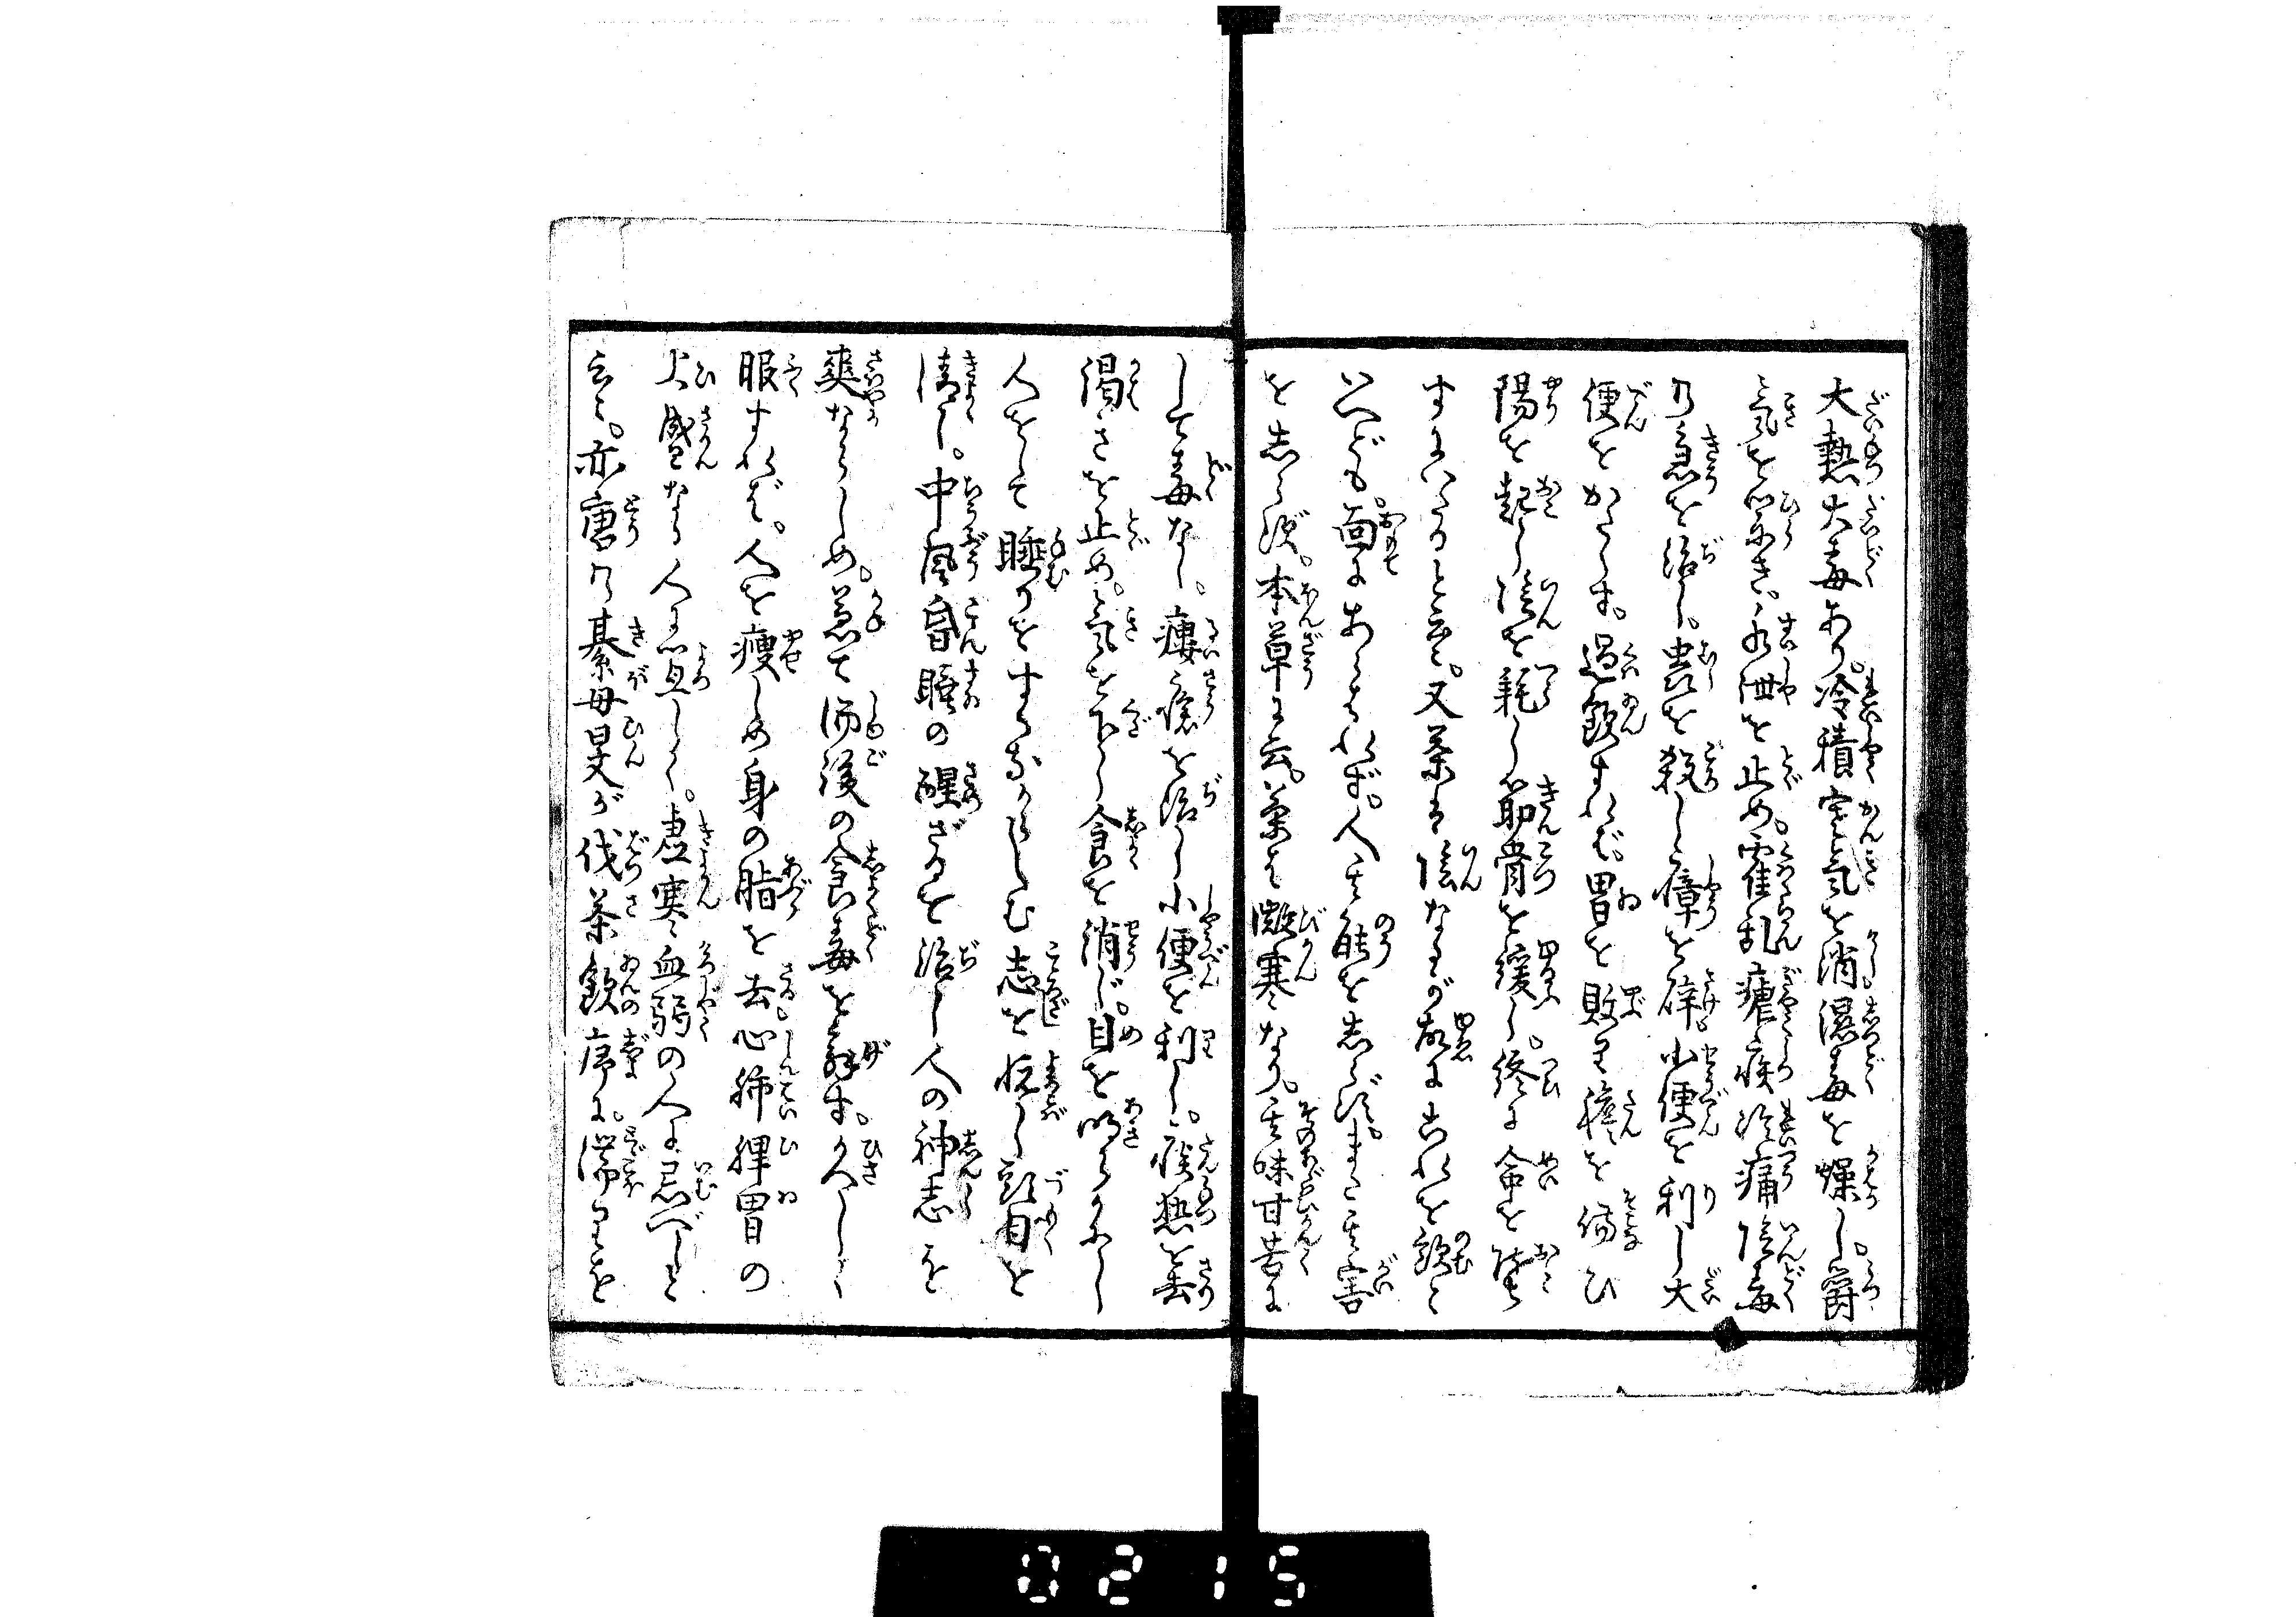 大熱大毒あり。冷積寒気を消湿毒を燥し。鬱
気を開き。水泄を止め。霍乱瘧疾冷痛陰毒
乃急を治し。虫を殺し瘴を辟。小便を利し大
便をかたくす。過飲すれば。胃を敗り胆を傷ひ
陽を起し陰を耗し筋骨を緩し。終に命を隕
すにいたるとぞ。又茶は陰なるが故にこれを飲と
いへども。面にあらはれず。人其能をしらず。また其害
をしらず。本草に云。茶は微寒なり。其味甘苦に
して毒なし。瘻瘡を治し小便を利し。痰熱を去
渇きを止め。気を下し食を消し。目を明らかにし
人をして睡りをすくなからしむ志を悦し頭目を
清し。中風昏睡の醒ざるを治し人の神志を
爽ならしめ。兼て酒後の食毒を解す。久しく
服すれば。人を痩しめ身の脂を去。心肺脾胃の
火盛なる人に宜しく。虚寒血弱の人は忌べしと
云々。亦唐乃綦母旻が伐茶飲序に。滞りを
0215